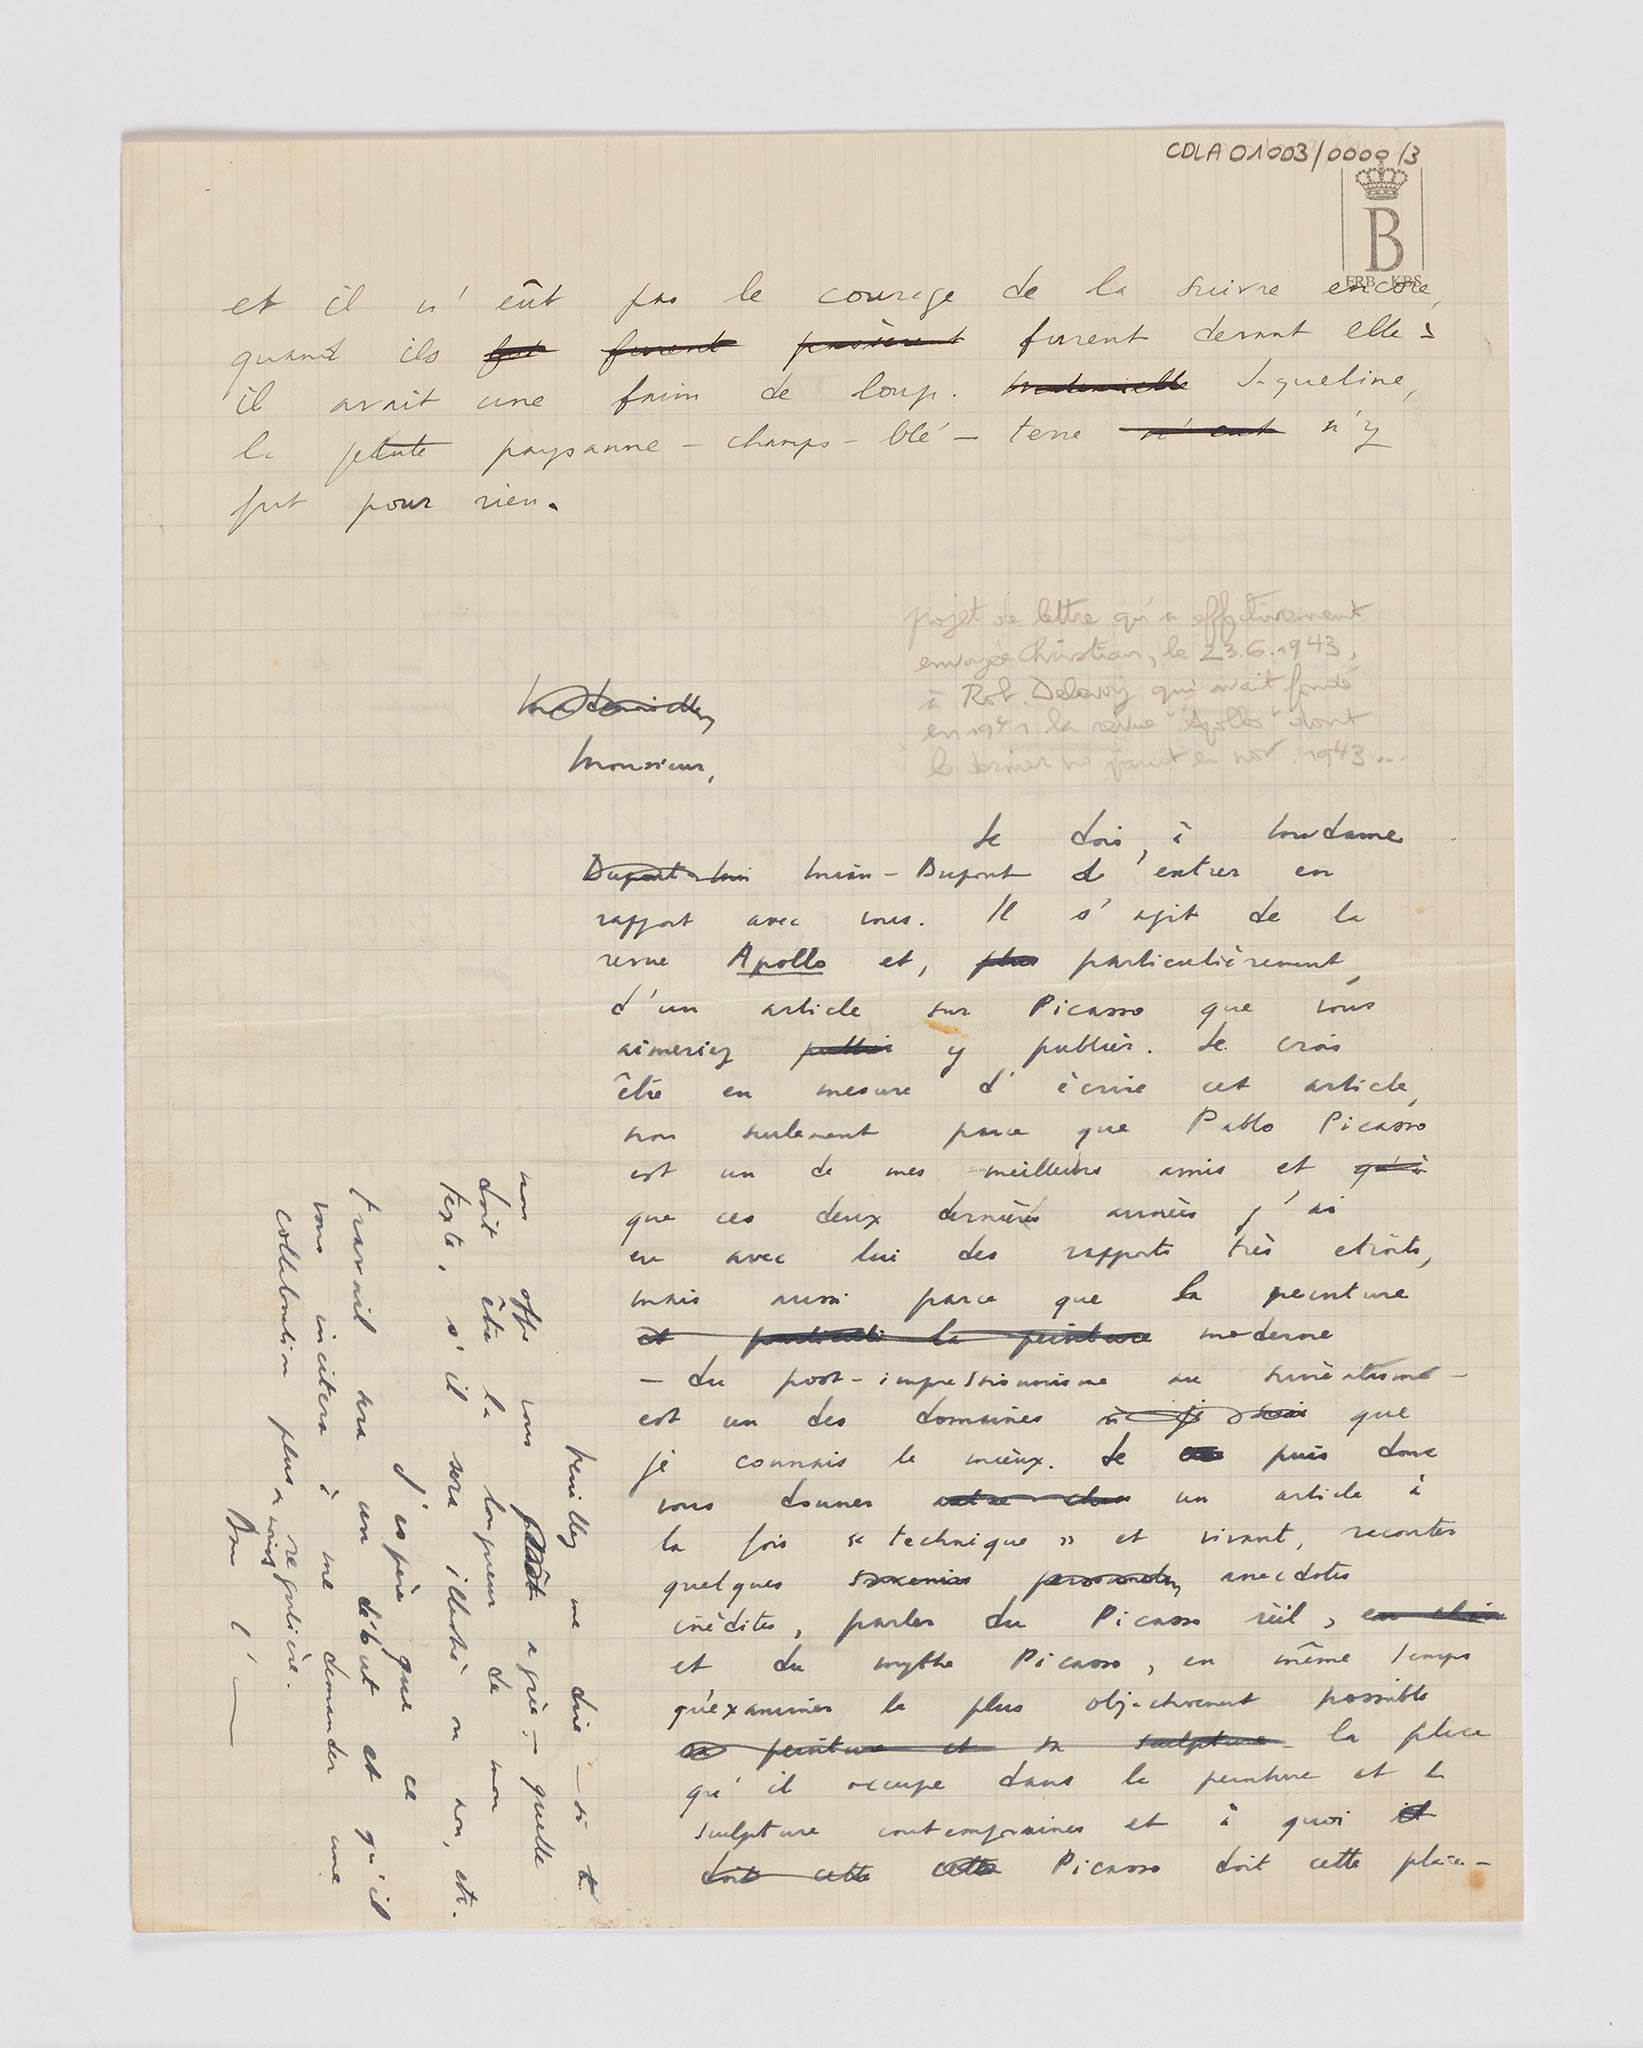 CDLA 01003/0000/3
B
FRB KBS
et il n'eût pas le courage de la suivre encore,
quand ils fut furent passèrent furent devant elle :
il avait une faim de loup. Mademoiselle Jaqueline,
la petite paysanne - champs - blé - terre n'eut n'y
fut pour rien.
projet de lettre qu'a effectivement
envoyée Christian, le 23.6.1943,
à Rob. Delevoy qui avait fondé
en 1941 la revue "Apollo" dont
le dernier no parut en nov. 1943...
Mademoiselle,
Monsieur,
Je dois, à Madame
Dupont-Min Min-Dupont d'entrer en
rapport avec vous. Il s'agit de la
revue Apollo et, plus particulièrement,
d'un article sur Picasso que vous
aimeriez publier y publier. Je crois
être en mesure d'écrire cet article,
non seulement parce que Pablo Picasso
est un de mes meilleurs amis et qu'à
que ces deux dernières années j'ai
eu avec lui des rapports très étroits,
mais aussi parce que la peinture
et particuli la peinture moderne
- du post-impressionnisme au surréalisme -
est un des domaines où je sais que
je connais le mieux. Je puis donc
vous donner un article à
la fois « technique » et vivant, raconter
quelques souvenirs personnels, anecdotes
inédites, parler du Picasso réel,
et du mythe Picasso, en même temps
qu'examiner le plus objectivement possible
sa peinture et sa sculpture la place
qu'il occupe dans la peinture et la
sculpture contemporaines et à quoi il
doit cette cette Picasso doit cette place -
Veuillez me dire - si
mon offre vous agrée - quelle
doit être la longueur de mon
texte, s'il sera illustré ou non, etc.
J'espère que ce
travail sera un début et qu'il
vous incitera à me demander une
collaboration plus ou moins régulière.